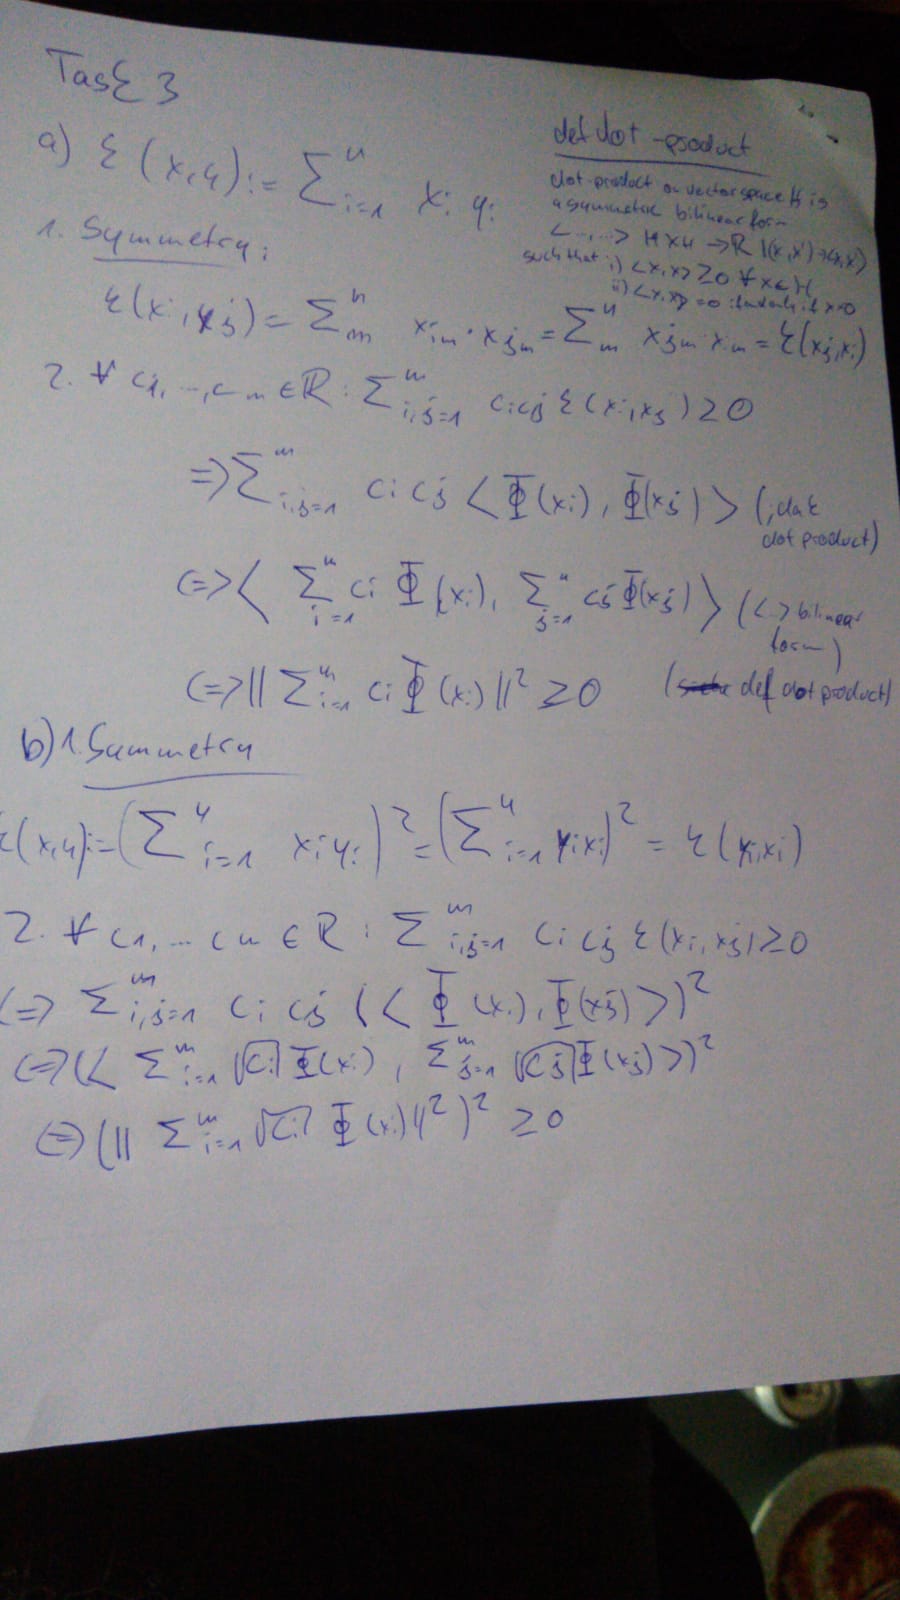 Task 3
a) k(x,y) := ∑_{i=1}^n x_i y_i
def dot-product
dot-product on vector space H is
a symmetric bilinear form
<...,...> H×H → ℝ |(x,x') → <x,x'>
such that i) <x,x> ≥ 0 ∀ x ∈ H
ii) <x,x> = 0 if and only if x=0
1. Symmetry:
k(x_i, x_j) = ∑_m^n x_{im} · x_{jm} = ∑_m^n x_{jm} · x_{im} = k(x_j, x_i)
2. ∀ c_1, ..., c_m ∈ ℝ : ∑_{i,j=1}^m c_i c_j k(x_i, x_j) ≥ 0
=> ∑_{i,j=1}^m c_i c_j < Φ(x_i), Φ(x_j) > (; da k
dot product)
<=> < ∑_{i=1}^n c_i Φ(x_i), ∑_{j=1}^n c_j Φ(x_j) > (<..> bilinear
form)
<=> || ∑_{i=1}^n c_i Φ(x_i) ||² ≥ 0 (def dot product)
b) 1. Symmetry
k(x,y) := (∑_{i=1}^n x_i y_i)² = (∑_{i=1}^n y_i x_i)² = k(y_i, x_i)
2. ∀ c_1, ... c_n ∈ ℝ : ∑_{i,j=1}^m c_i c_j k(x_i, x_j) ≥ 0
<=> ∑_{i,j=1}^m c_i c_j (< Φ(x_i), Φ(x_j) >)²
<=> (< ∑_{i=1}^m √c_i Φ(x_i), ∑_{j=1}^m √c_j Φ(x_j) >)²
<=> (|| ∑_{i=1}^m √c_i Φ(x_i) ||²)² ≥ 0